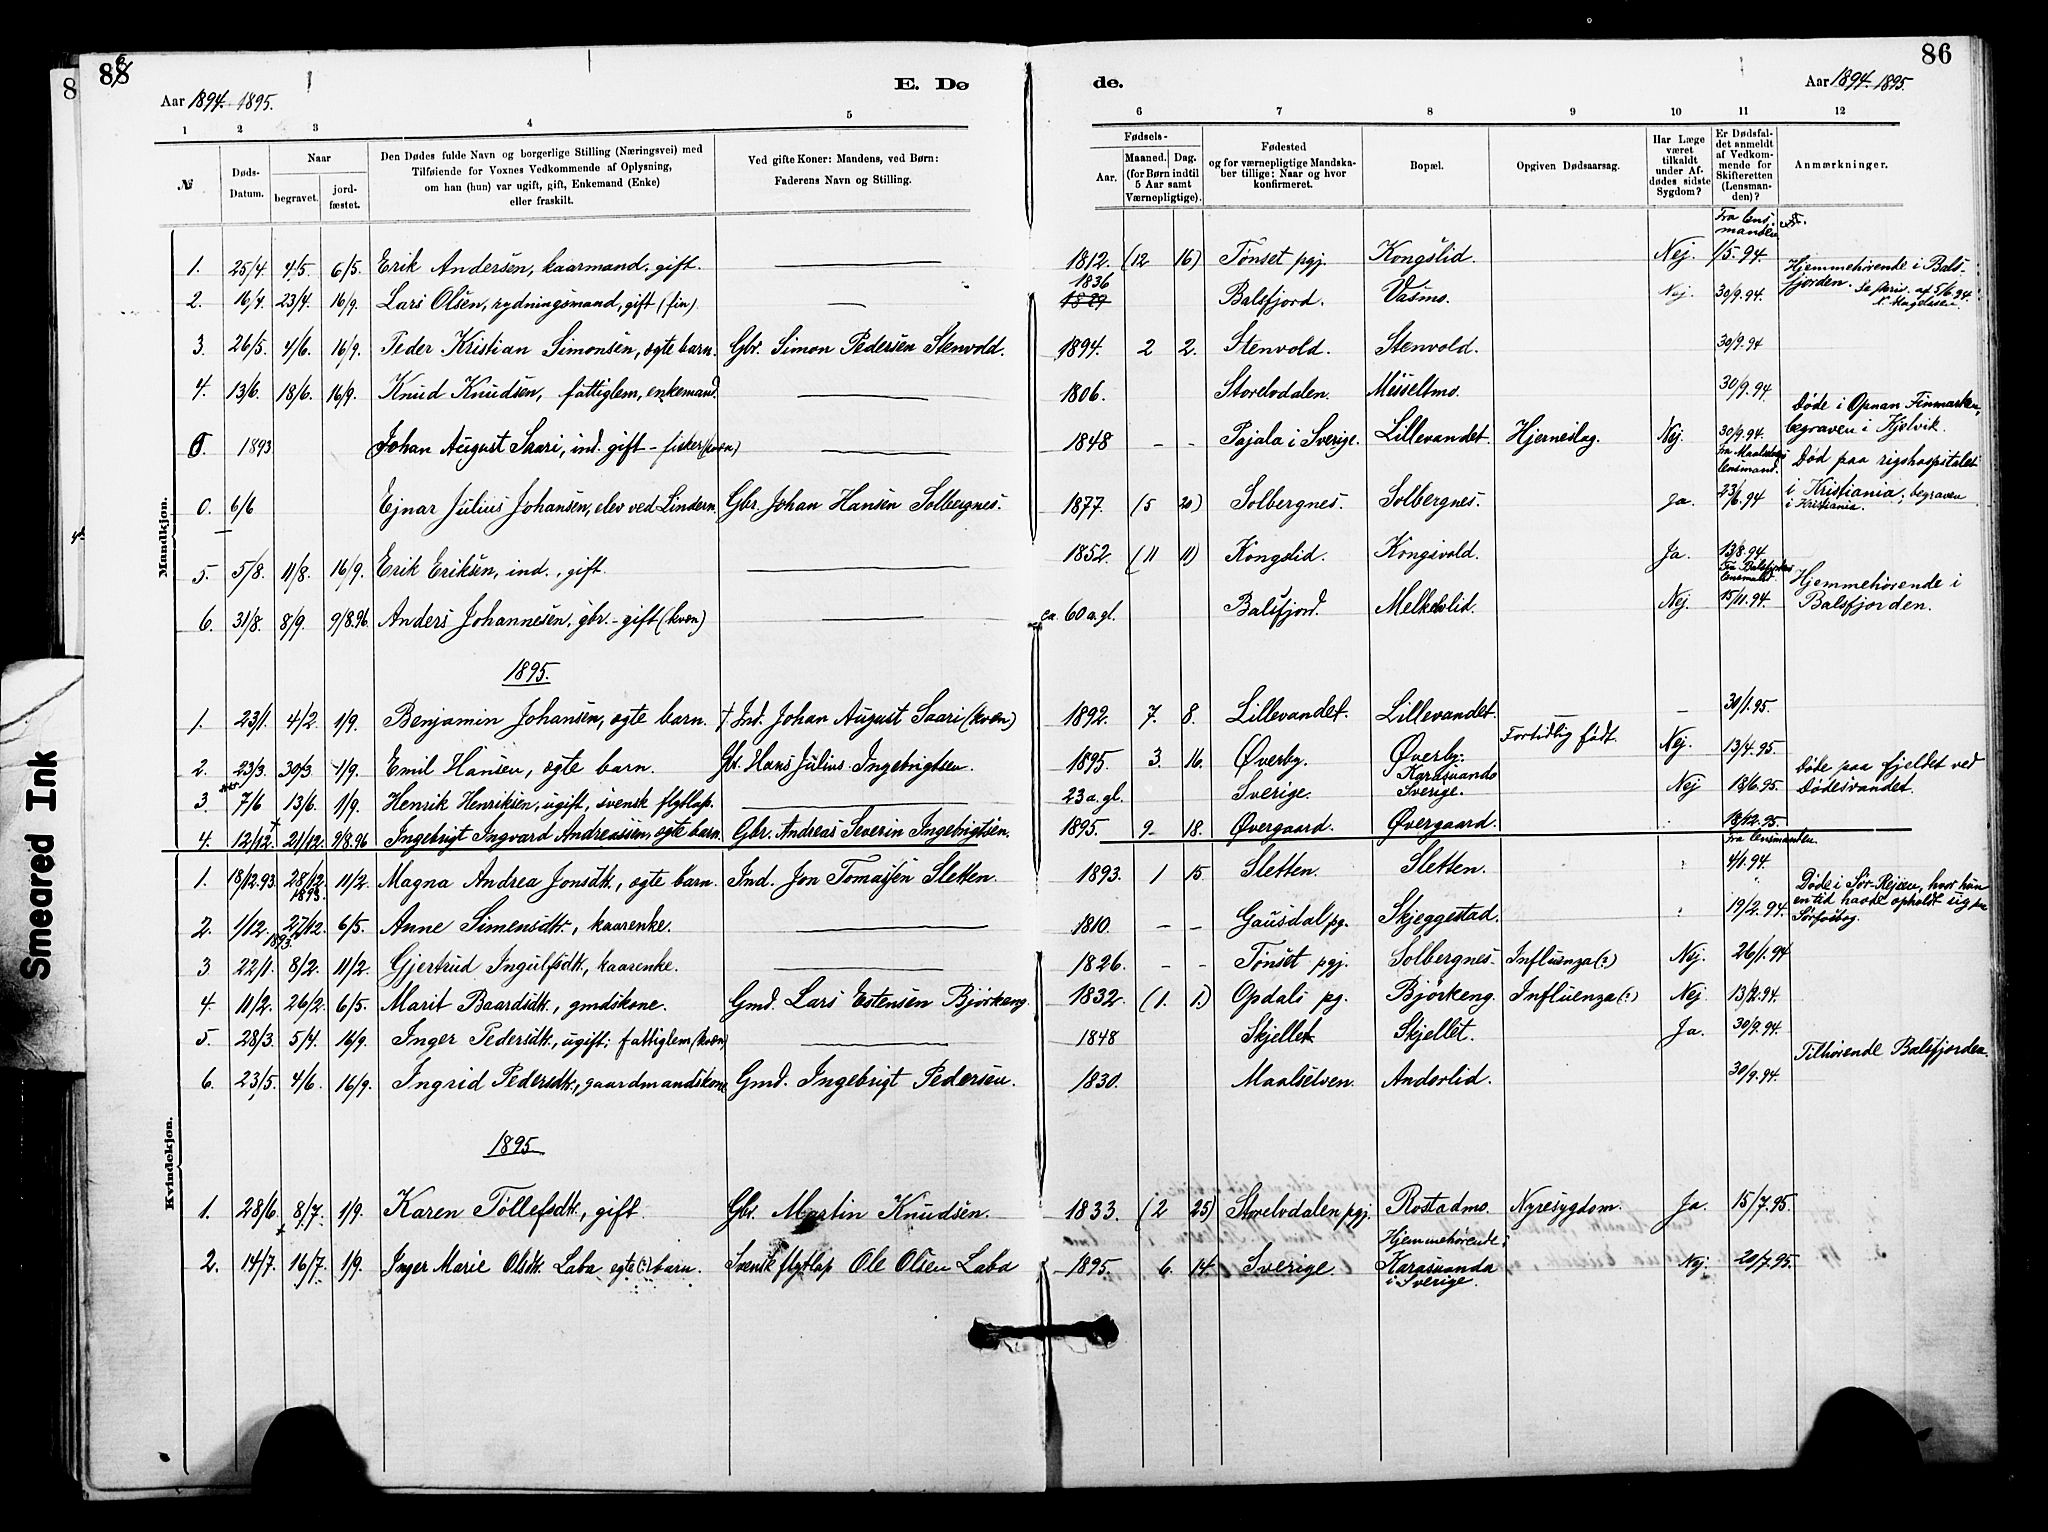 86
86
E. Dø
de.
Aar 1894. 1895.
Aar 1894. 1895.
1 2 3 4 5 6 7 8 9 10 11 12
№
Døds-Datum.
Naar
begravet.
jord-fæstet.
Den Dødes fulde Navn og borgerlige Stilling (Næringsvei) med
Tilføiende for Voxnes Vedkommende af Oplysning,
om han (hun) var ugift, gift, Enkemand (Enke)
eller fraskilt.
Ved gifte Koner: Mandens, ved Børn:
Faderens Navn og Stilling.
Fødsels-
Aar.
Maaned. Dag.
(for Børn indtil
5 Aar samt
Værnepligtige).
Fødested
og for værnepligtige Mandska-
ber tillige: Naar og hvor
konfirmeret.
Bopæl.
Opgiven Dødsaarsag.
Har Læge
været
tilkaldt
under Af-
dødes sidste
Sygdom?
Er Dødsfal-
det anmeldt
af Vedkom-
mende for
Skifteretten
(Lensman-
den)?
Anmærkninger.
Mandkjøn.
Fra lens-
manden
1. 25/4. 4/5. 6/5. Erik Andersen, kaarmand, gift. 1812. (12 16) Tønset pgj. Kongslid. Nej. 1/5. 94.
2. 16/4. 23/4. 16/9. Lars Olsen, rydningsmand, gift (fin) 1836 1829 Balsfjord. Vasmo. Nej. 30/9. 94. Hjemmehørende i Bals-
fjorden.
3. 26/5. 4/6. 16/9. Peder Kristian Simonsen, egte barn. Gbr. Simon Pedersen Stenvold. 1894. 2 2. Stenvold. Stenvold. 30/9. 94
4. 13/6. 18/6. 16/9. Knud Knudsen, fattiglem, enkemand. 1806. Storelvdalen. Messeltmo. 30/9. 94.
0. 1893 Johan August Saari, ind. gift - fisker (kven) 1848 - - Pajala i Sverige. Lillevandet. Hjerneslag. Nej. 30/9. 94. Døde i Opnan Finmarken,
begraven i Kjelvik.
Fra Maalselvens
lensmand.
0. 6/6 Ejnar Julius Johansen, elev ved Lindern. Gbr. Johan Hansen Solbergnes. 1877. (5 20) Solbergnes. Solbergnes. Ja. 23/6. 94 Død paa rigshospitalet
i Kristiania, begraven
i Kristiania.
5. 5/8. 11/8. 16/9. Erik Eriksen, ind., gift. 1852. (11 11) Kongslid. Kongsvold. Ja. 13/8. 94.
Fra Balsfjordens
lensmand.
6. 31/8. 8/9. 9/8. 96. Anders Johannesen, gbr. - gift (kven) ca. 60 a. gl. Balsfjord. Melkelid. Nej. 15/11. 94. Hjemmehørende i
Balsfjorden.
1895.
1. 23/1. 4/2. 1/9. Benjamin Johansen, egte barn. † Ind. Johan August Saari (kven) 1892. 7. 8. Lillevandet. Lillevandet. - 30/1. 95.
2. 23/3. 30/3. 1/9. Emil Hansen, egte barn. Gbr. Hans Julius Ingebrigtsen. 1895. 3. 16. Øverby. Øverby. Fortidlig født. Nej. 13/4. 95.
3. 7/6 13/6. 1/9. Henrik Henriksen, ugift, svensk flytlap. 23 a. gl. Sverige. Karasuando
Sverige. Nej 18/6. 95. Døde paa fjeldet ved
Dødesvandet.
4. 12/12. 21/12. 9/8. 96 Ingebrigt Ingvard Andreassen, egte barn. Gbr. Andreas Severin Ingebrigtsen. 1895. 9. 18. Øvergaard. Øvergaard. 18/12. 95.
Kvindekjøn.
Fra lensmanden
1. 18/12. 93. 28/12. 1893. 11/2. Magna Andrea Jonsdtr., egte barn. Ind. Jon Tomassen Sletten. 1893. 1 15 Sletten. Sletten. 4/1. 94.
2. 1/12. 1893. 27/12. 6/5. Anne Simensdtr., kaarenke. 1810. - - Gausdal pg. Skjeggestad. 19/2. 94. Døde i Sør-Rejsen, hvor hun
en tid havde opholdt sig paa
Sørfosbog.
3 22/1. 8/2. 11/2. Gjertrud Ingulfsdtr., kaarenke. 1826. - - Tønset pgj. Solbergnes. Influenza (?) Nej. 26/1. 94
4. 11/2. 26/2. 6/5. Marit Baardsdtr., gmdskone. Gmd. Lars Estensen Bjørkeng. 1832. (1. 1.) Opdals pg. Bjørkeng. Influenza (?) Nej. 13/2. 94.
5. 28/3. 5/4. 16/9. Inger Pedersdtr., ugift; fattiglem (kven) 1848 Skjellet. Skjellet. Ja. 30/9. 94. Tilhørende Balsfjorden.
6. 23/5. 4/6. 16/9. Ingrid Pedersdtr., gaardmandskone Gmd. Ingebrigt Pedersen. 1830. Maalselven. Anderlid. 30/9. 94.
1895
1. 28/6. 8/7. 1/9. Karen Tollefsdtr., gift Gbr. Martin Knudsen. 1833. (2 25) Storelvdalen pgj. Rostadmo. Nyresygdom. Ja. 15/7. 95.
2. 14/7. 16/7. 1/9. Inger Marie Olsdtr. Laba egte (?) barn. Svensk flytlap Ole Olsen Laba 1895. 6. 14. Sverige. Hjemmehørende i
Karasuanda
i Sverige. Nej. 20/7. 95.
Smeared Ink